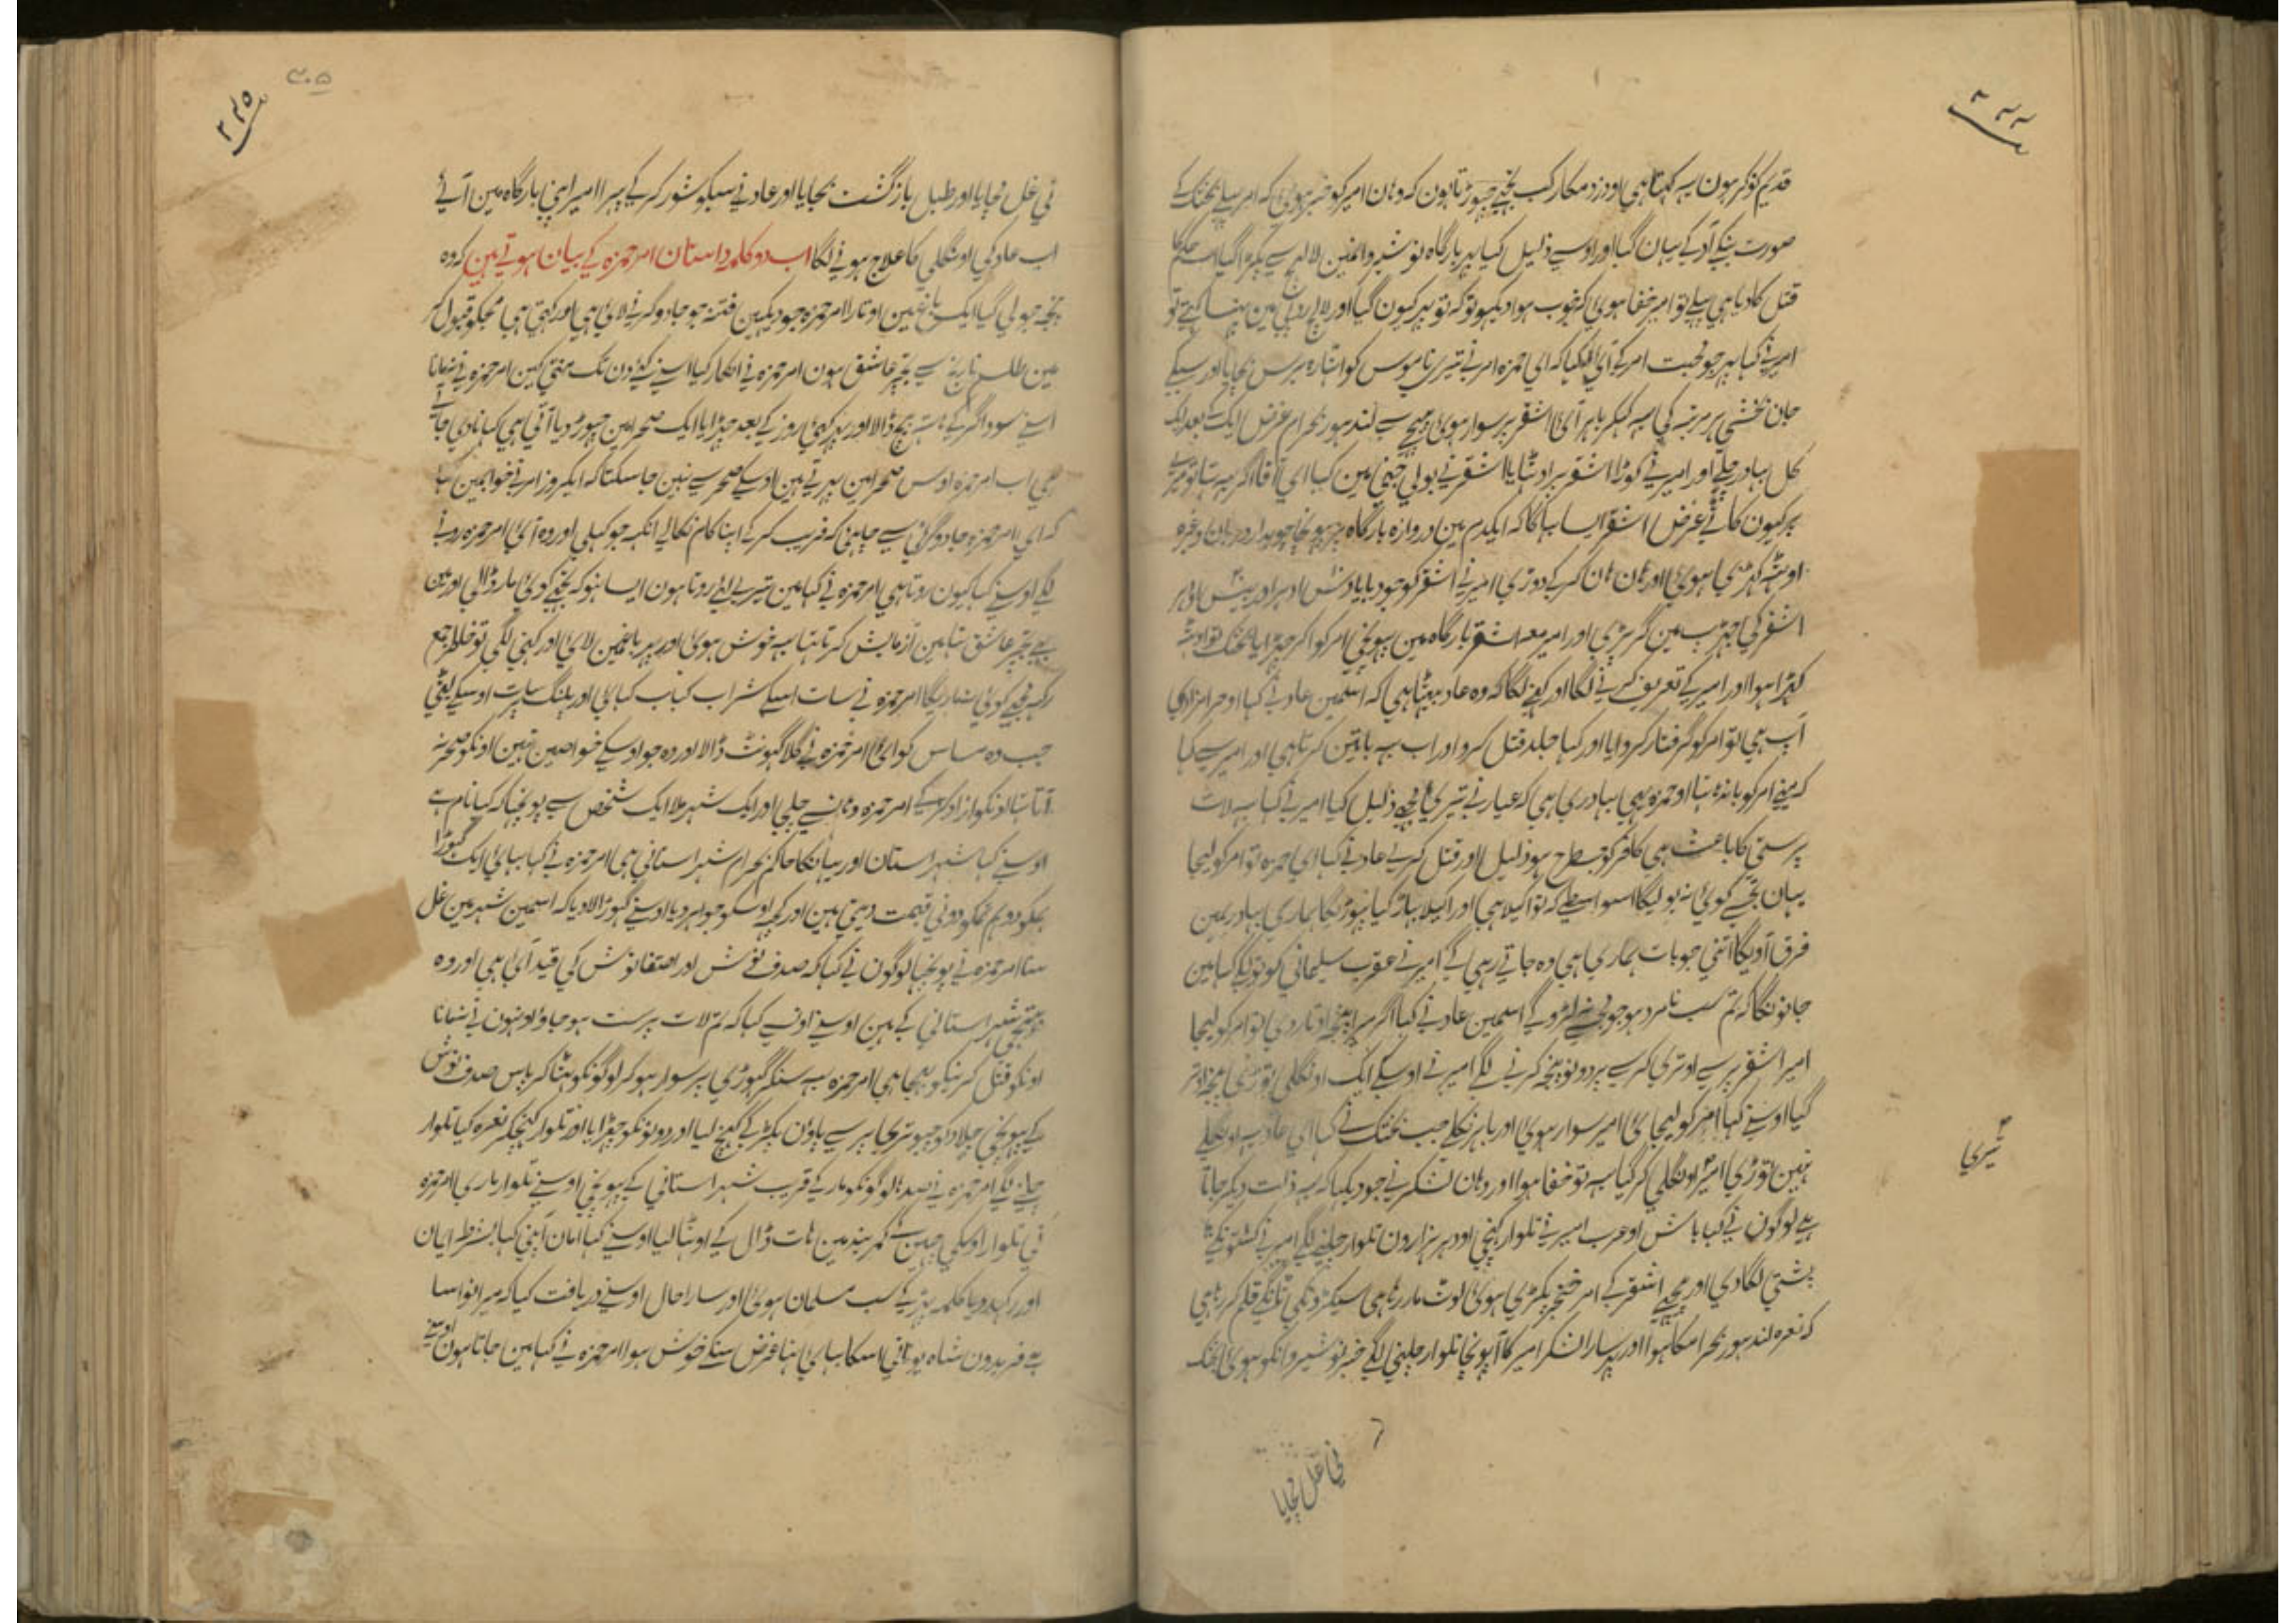 قدیم نوکر ہون یہ کہتا ہی اودزد مکار کب تجہے چہوڑتا ہون کہ وہان امیر کو خبر ہوی کہ امر پہلے بختک کے
صورت بنکے آد کے یہان گیا اور اوسے ذلیل کیا پہر بارگاہ نوشیروانمین لالچ سے پکڑا گیا اسے حکم
قتل کا دیا ہی پہلے تو امیر خفا ہوی کہ خوب ہوا دیکہو تو کہ تو پہر کیون گیا اور لالچ
امیر نے کہا پہر جو محبت امر کے آی للکیا کہ ای حمزہ امر نے تیری ناموس کو اٹہارہ برس بچایا اور سبکے
جان بخشی ہر مرتبہ کی یہ کہکر باہر آی اشقر پر سوار ہوی پیچہے سے لندہور بحرام غرض ایک کے بعد ایک
کل بہادر چلے اور امیر نے کوڑا اشقر پر اوٹہایا اشقر نے بولی جنی مین کہا ای آقا اگر
غرض اشقر ایسا بہاگا کہ ایکدم مین دروازہ بارگاہ پر پہونچا چوبدار دربان وغیرہ
اوٹہہ کہڑی ہوی اور ہان ہان کر کے دوڑی امیر نے اشقر کو جو دبایا دس ادہر اور بیس اودہر
اشقر کی جہڑپ مین گر پڑی اور امیر معہ اشقر بارگاہ مین پہونچی امر کو اکر چہڑایا بختک تو اوٹہہ
کہڑا ہوا اور امیر کے تعریف کرنے لگا اور کہنے لگا کہ وہ عاد بیٹہا ہی کہ اسمین عاد نے کہا او حرامزادی
آپ ہی تو امر کو گرفتار کروایا اور کہا جلد قتل کرو اور اب یہ باتین کرتا ہی اور امیر سے کہا
کہ مینے امر کو باندہا تہا او حمزہ یہی بہادری ہی کہ عیار نے تیری مجہے ذلیل کیا امیر نے کہا یہ لات
پرستی کا باعث ہی کافر کو جسطرح ہو ذلیل اور قتل کرے عاد نے کہا ای حمزہ تو امر کو لیجا
یہان تجہسے کوی نہ بولیگا اسواسطے کہ تو اکیلا ہی اور اکیلا پہاڑ کیا پہوڑیگا ہماری بہادریمین
فرق آویگا اتنی جو بات ہماری ہی وہ جاتے رہی گے امیر نے عقرب سلیمانی کو تولکے کہا مین
جانونگا کہ تم سب نامرد ہو جو مجہسے نہ لڑوگے اسمین عاد نے کہا اگر میرا پنجہ اوتار دی تو امر کو لیجا
امیر اشقر پر سے اوتری کرسے پر دونو پنجہ کرنے لگے امیر نے اوسکے ایک اونگلی توڑی پنجہ اوتر
گیا اوسنے کہا امر کو لیجا ی امیر سوار ہوی اور باہر نکلے جب بختک نے کہا ای عاد یہ اونگلے
نہین توڑی امیر اونگلی کر گیا یہ تو خفا ہوا اور وہان لشکر نے جو دیکہا کہ یہ ذلت دیکر جاتا
ہے لوگون نے کہا باش او عرب امیر نے تلوار کہنچی اودہر ہزارون تلوار چلنے لگے امیر نے کشتونکے
پشتی لگادی اور پیچہے اشقر کے امر خنجر پکڑی ہوی لوٹ مار رہا ہی سیکڑونکی ٹانگے قلم کر رہا ہی
کہ نعرہ لندہور بحرامکا ہوا اور پہر سارا لشکر امیر کا آپہونچا تلوار چلنی لگے خبر نوشیروانکو ہوی بختک
تیری
نی غل مچایا
نی غل مچایا اور طبل بازگشت بجایا اور عاد نے سبکو شور کر کے پہرا امیر اپنی بارگاہ مین آئے
اب عاد کی اونگلی کا علاج ہونے لگا اب دو کلمہ داستان امر حمزہ کے بیان ہوتے ہین کہ وہ
پنجہ جو لی گیا ایک باغ مین اوتارا امر حمزہ جو دیکہین فتنہ جو جادوگرنے لائی ہی اور کہتی ہی مجکو قبول کر
مین طلسم نارنج سے تجہپر عاشق ہون امر حمزہ نے انکار کیا اسنے کیی دن تک منتی کین امر حمزہ نے نمانا
اسنے سوداگر کے ہاتہہ بیچ ڈالا اور پہر کہی روز کے بعد چہڑایا ایک صحرامین چہوڑ دیا آتی ہی کہانا دی جاتے
ہی اب امر حمزہ اوس صحرامین پہرتے ہین اوسکے صحر سے نہین جاسکتا کہ ایکروز امر نے خوابمین کہا
کہ ای امر حمزہ جادوگرنی سے چاہئی کہ فریب کر کے اپنا کام نکالے انکہہ جو کہلی اور وہ آی امر حمزہ رونے
لگے اوسنے کہا کیون روتا ہی امر حمزہ نے کہا مین تیرے لئے روتا ہون ایسا نہو کہ تجہے کوی مار ڈالے اور مین
بہے تجہپر عاشق تہا مین ازمایش کرتا تہا یہ خوش ہوی اور پہر باغمین لای اور کہنی لگی تو خاطر جمع
رکہہ مجہے کوی نمار یگا امر حمزہ نے سات اسکے شراب کباب کہای اور پلنگ پر سات اوسکے لیٹی
جب وہ ساس کو ای امر حمزہ نے گلا گہونٹ ڈالا اور وہ جو اوسکے خواصین تہین اونکو صحر نہ
آتا تہا اونکو ازاد کرکے امر حمزہ وہانسے چلی اور ایک شہر ملا ایک شخص سے پونچہا کہ کیا نام ہے
اوسنے کہا شہراستان اور یہانکا حاکم بحرام شہراستانی ہی امر حمزہ نے کہا بہای ایک گہوڑا
ہمکو دو ہم تمکو دونی قیمت دیتی ہین اور کچہہ اوسکو جواہر دیا اوسنے گہوڑا لادیا کہ اسمین شہر مین غل
سنا امر حمزہ نے پونچہا لوگون نے کہا کہ صدف نوش اور اصفا نوش کی قید آی ہی اور وہ
بہتیجی شہراستانی کے ہین اوسنے اونسے کہا کہ تم لات پرست ہو جاؤ اونہون نے نمانا
اونکو قتل کرنیکو بہیجا ہی امر حمزہ یہ سنکر گہوڑی پر سوار ہو کر لوگونکو ہٹا کر پاس صدف نوش
کے پہونچی جلاد کو چبوتری پر سے پاون پکڑ کے کہینچ لیا اور دونونکو چہڑایا اور تلوار کہنچکر نعرہ کیا تلوار
چلنے لگے امر حمزہ نے صدہا لوگونکو مار کے قریب شہراستانی کے پہونچی اوسنے تلوار ماری امر حمزہ
نی تلوار اوسکی چہین کے کمربند مین ہات ڈال کے اوٹہا لیا اوسنے کہا امان آپنی کہا بشرط ایمان
اور رکہدیا کلمہ پڑہ کے سب مسلمان ہوی اور سارا حال اوسنے دریافت کیا کہ میرا نواسا
ہے فریدون شاہ یونانی اسکا بہای تہا غرض سنکے خوش ہوا امر حمزہ نے کہا مین جاتا ہون اوسنے